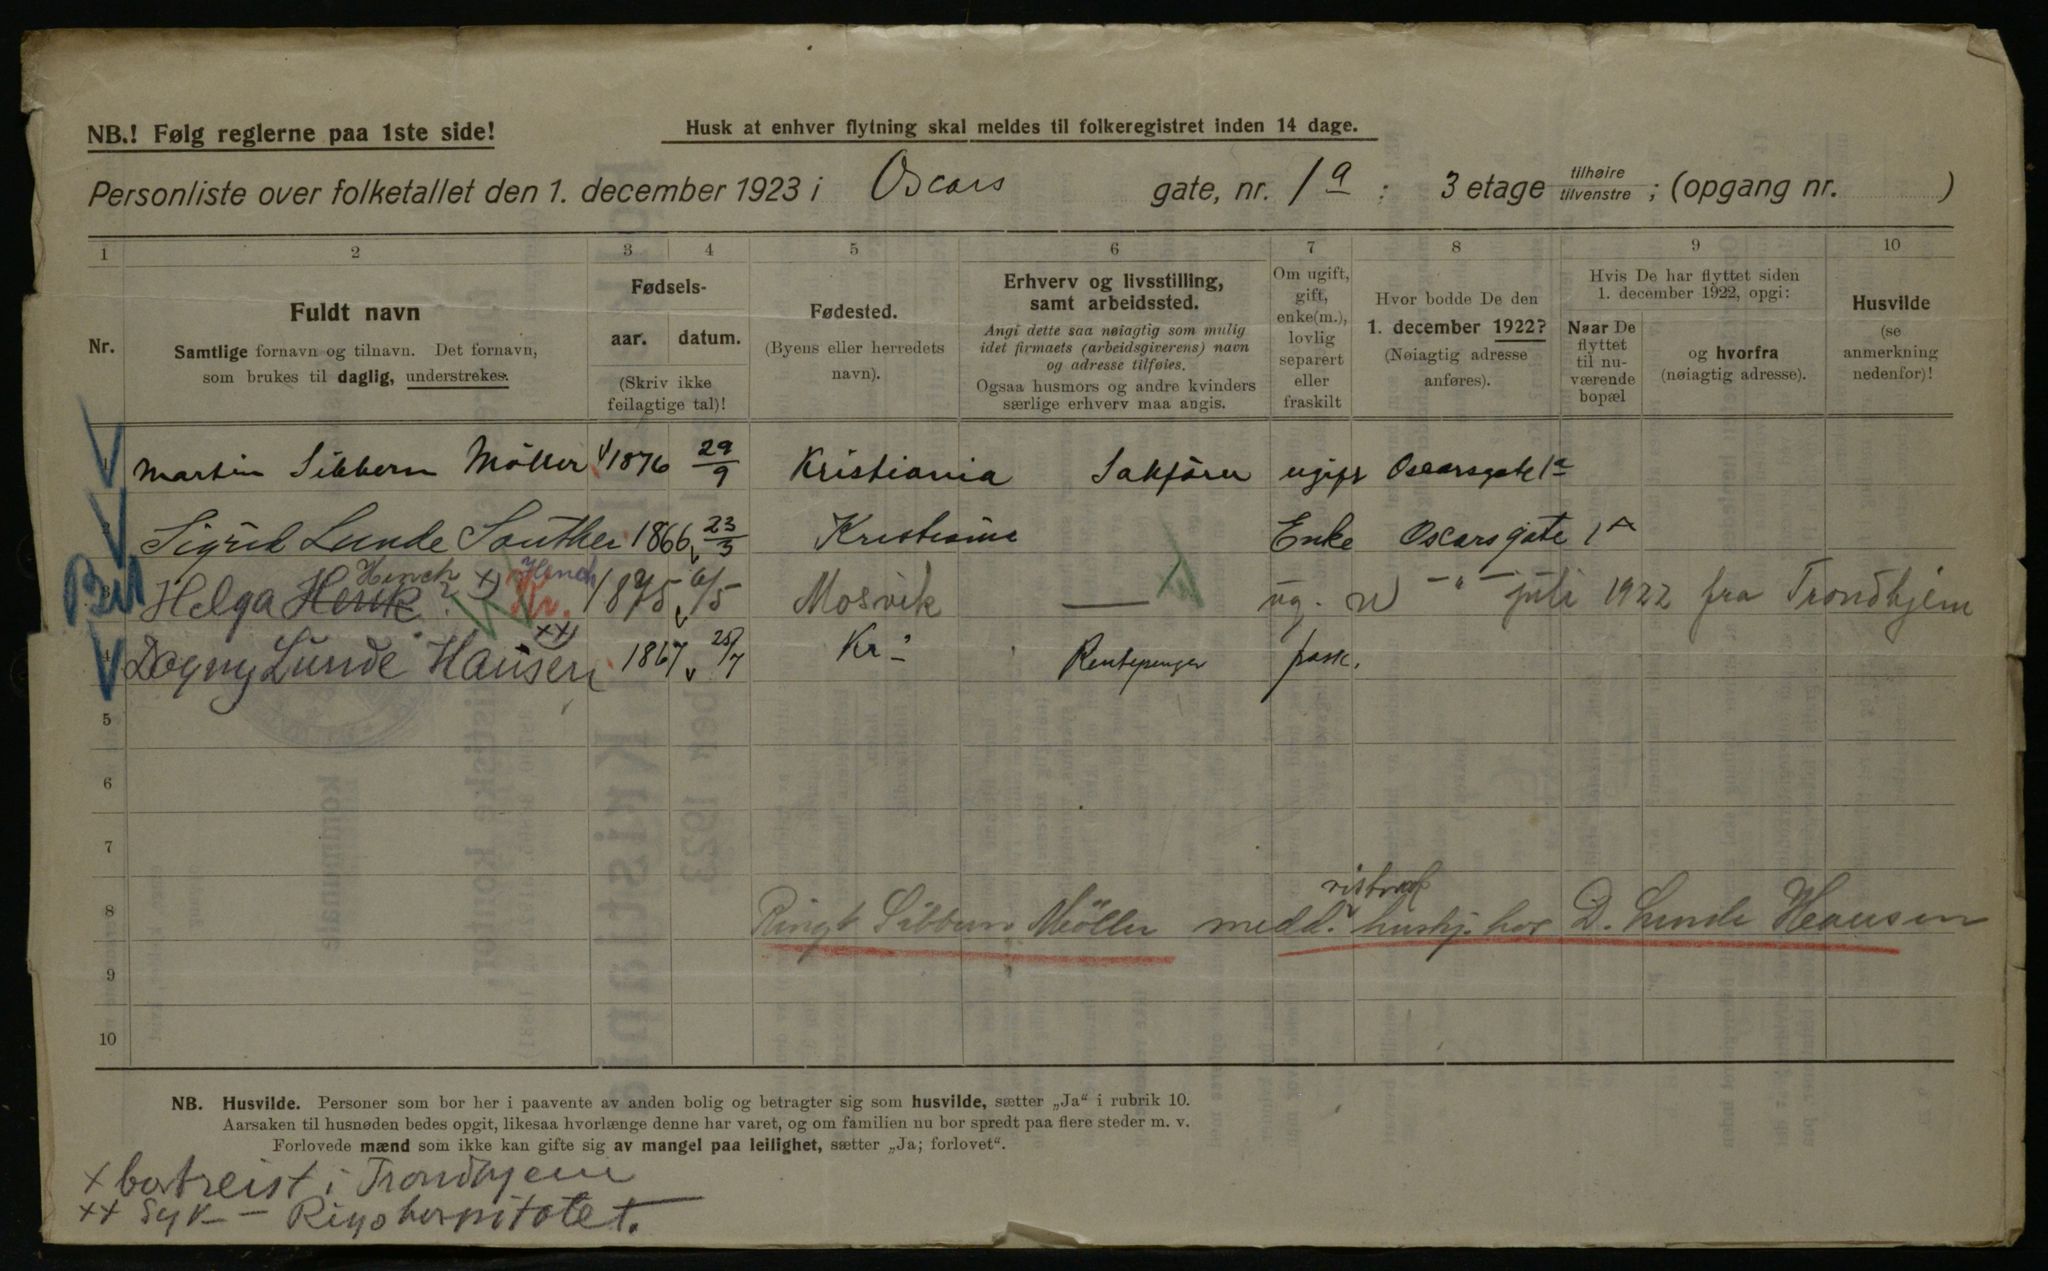 NB.! Følg reglerne paa 1ste side!
Husk at enhver flytning skal meldes til folkeregistret inden 14 dage.
Personliste over folketallet den 1. december 1923 i Oscars gate, nr. 1a : 3 etage tilhøire / tilvenstre ; (opgang nr. )
1 2 3 4 5 6 7 8 9 10
Nr.
Fuldt navn
Samtlige fornavn og tilnavn. Det fornavn, som brukes til daglig, understrekes.
Fødsels-
aar. datum.
(Skriv ikke feilagtige tal)!
Fødested.
(Byens eller herredets navn).
Erhverv og livsstilling, samt arbeidssted.
Angi dette saa nøiagtig som mulig idet firmaets (arbeidsgiverens) navn og adresse tilføies.
Ogsaa husmors og andre kvinders særlige erhverv maa angis.
Om ugift, gift, enke(m.), lovlig separert eller fraskilt
Hvor bodde De den 1. december 1922?
(Nøiagtig adresse anføres).
Hvis De har flyttet siden 1. december 1922, opgi:
Naar De flyttet til nuværende bopæl
og hvorfra (nøiagtig adresse).
Husvilde
(se anmerkning nedenfor)!
Martin Sibbern Möller 1876 29/9 Kristiania Sakförer ugift Oscarsgate 1a
Sigrid Lunde Souther 1866 23/3 Kristiania Enke Oscarsgate 1A
Helga Henk Hench ? x) Hench Kr. 1875 6/5 Mosvik — ug. — " — juli 1922 fra Trondhjem
Dagny Lunde Hansen xx) 1867 25/7 Kr. Rentepenger frask.
5
6
7
8
Ringt Sibbern Möller medd. hushj. hos D. Lunde Hansen
9
10
NB. Husvilde. Personer som bor her i paavente av anden bolig og betragter sig som husvilde, sætter „Ja" i rubrik 10.
Aarsaken til husnøden bedes opgit, likesaa hvorlænge denne har varet, og om familien nu bor spredt paa flere steder m. v.
Forlovede mænd som ikke kan gifte sig av mangel paa leilighet, sætter „Ja; forlovet".
x bortreist i Trondhjem
xx Syk — Rigshospitalet.